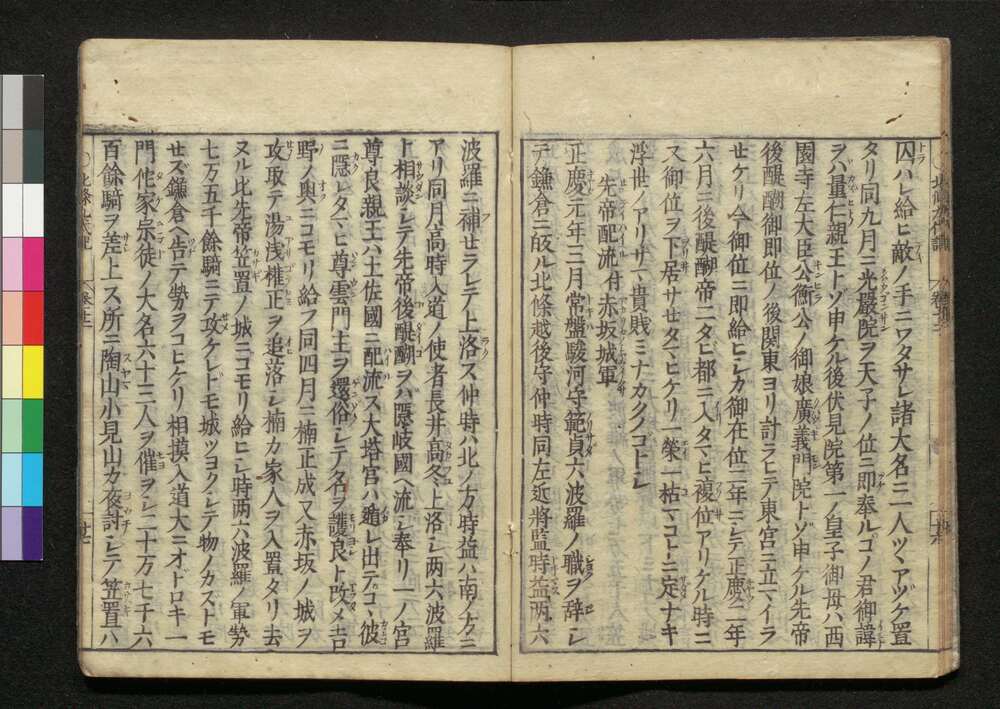 囚ハレ給ヒ敵ノ手ニワタサレ諸大名ニ一人ツヽアヅケ置
タリ同九月ニ光嚴院ヲ天子ノ位ニ即奉ルコノ君御諱
ヲバ量仁親王トゾ申ケル後伏見院第一ノ皇子御母ハ西
園寺左大臣公衡公ノ御娘廣義門院トゾ申ケル先帝
後醍醐御即位ノ後関東ヨリ計ラヒテ東宮ニ立マイラ
せケリ今御位ニ即給ヒシカ御在位二年ニシテ正慶二年
六月ニ後醍醐帝ニタビ都ニ入タマヒ複位アリケル時ニ
又御位ヲ下居サせタマヒケリ一榮一枯マコトニ定ナキ
浮世ノアリサマ貴賎ミナカクノコトシ
先帝配流付赤坂城軍
正慶元年三月常盤駿河守範貞六波羅ノ職ヲ辞シ
テ鎌倉ニ皈ル北條越後守仲時同左近將監時益兩六
波羅ニ補せラレテ上洛ス仲時ハ北ノ方時益ハ南ノ方ニ
アリ同月高時入道ノ使者長井高冬上洛シ两六波羅
ト相談シテ先帝後醍醐ヲバ隠岐國ヘ流シ奉リ一ノ宮
尊良親王ハ土佐國ニ配流ス大塔宮ハ遁レ出テコヽ彼
ニ隠レタマヒ尊雲門主ヲ還俗シテ名ヲ護良ト改メ吉
野ノ奥ニコモリ給フ同四月ニ楠正成又赤坂ノ城ヲ
攻取テ湯浅権正ヲ追落シ楠カ家人ヲ入置タリ去
ヌル比先帝笠置ノ城ニコモリ給ヒシ時两六波羅ノ軍勢
七万五千餘騎ニテ攻ケレドモ城ツヨクシテ物ノカズトモ
せズ鎌倉ヘ告テ勢ヲコヒケリ相摸入道大ニオドロキ一
門佗家宗徒ノ大名六十三人ヲ催ヲシ二十万七千六
百餘騎ヲ差上ス所ニ陶山小見山カ夜討シテ笠置ハ